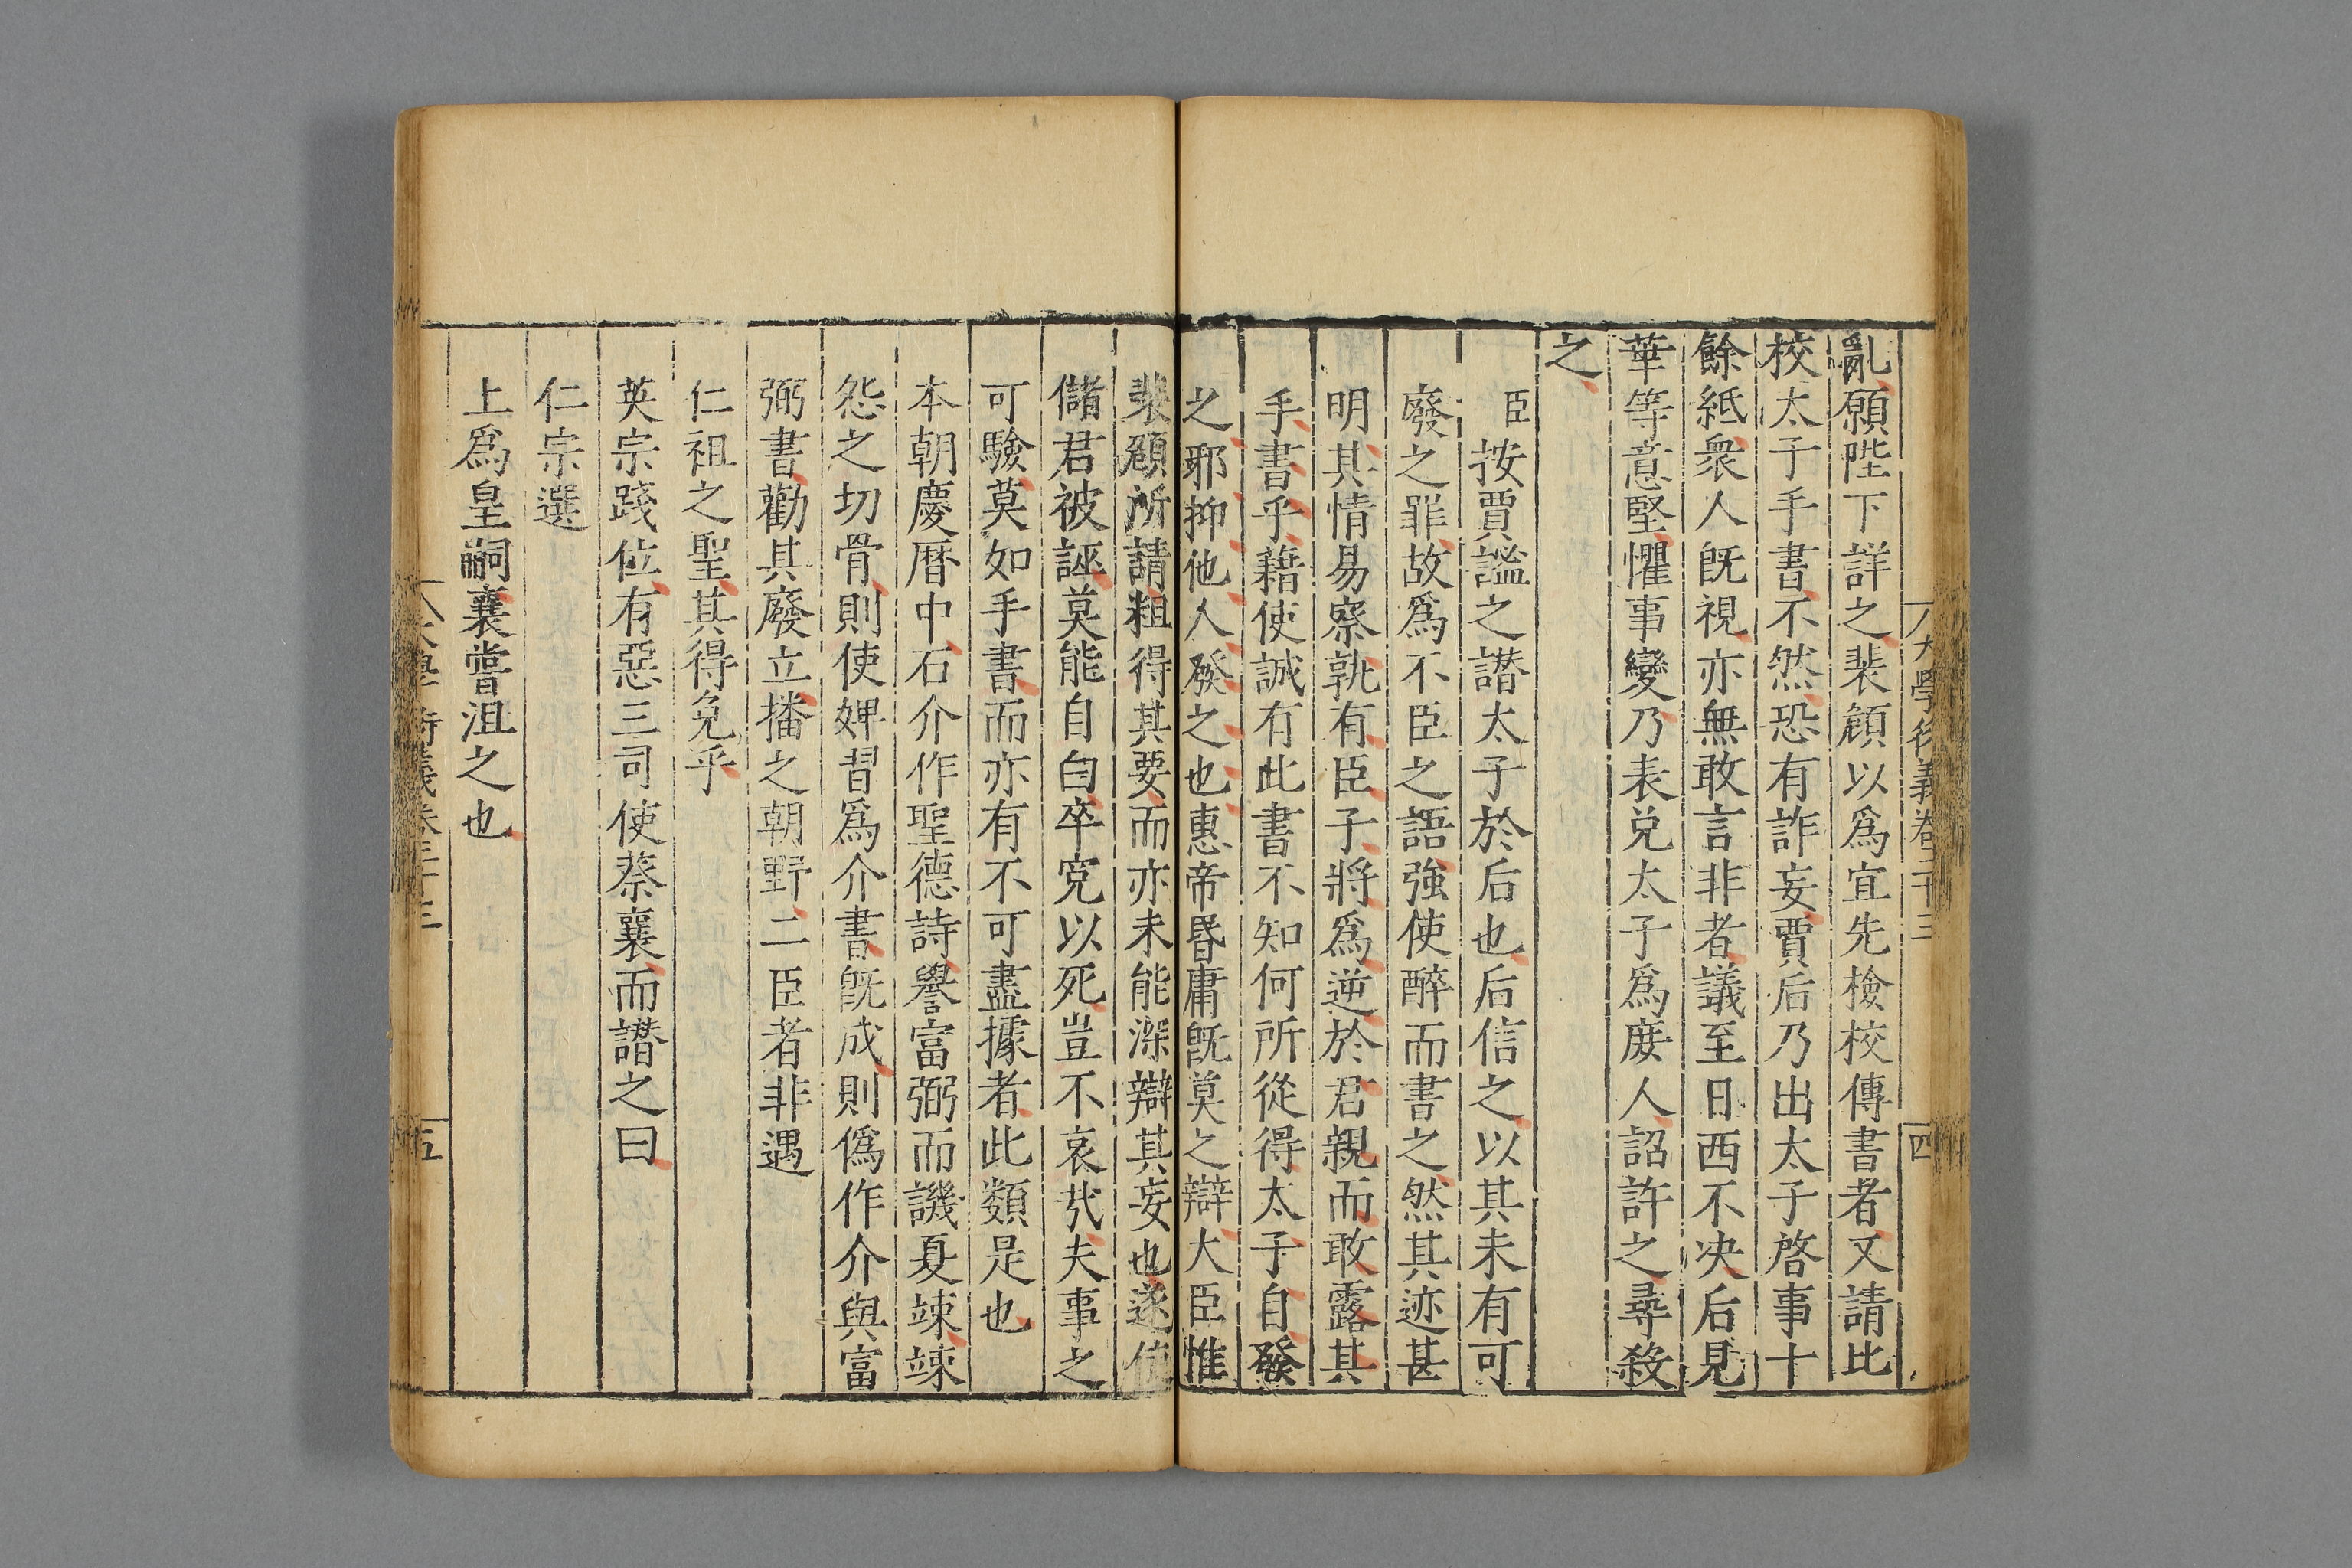 大學衍義卷二十三 四
亂願陛下詳之裴頠以爲宜先檢校傳書者又請比
校太子手書不然恐有詐妄賈后乃出太子啓事十
餘紙衆人旣視亦無敢言非者議至日西不决后見
華等意堅懼事變乃表兌太子爲庻人詔許之尋殺
之
臣按賈謐之譖太子於后也后信之以其未有可
廢之罪故爲不臣之語強使醉而書之然其迹甚
明其情易察孰有臣子將爲逆於君親而敢露其
手書乎藉使誠有此書不知何所從得太子自發
之耶抑他人發之也惠帝昏庸旣莫之辯大臣惟
裴頠所請粗得其要而亦未能深辯其妄也遂使
儲君被誣莫能自白卒寃以死豈不哀㢤夫事之
可驗莫如手書而亦有不可盡據者此類是也
本朝慶曆中石介作聖德詩譽富弼而譏夏竦竦
怨之切骨則使婢習爲介書旣成則僞作介與富
弼書勸其廢立播之朝野二臣者非遇
仁祖之聖其得免乎
英宗踐位有惡三司使蔡襄而譖之曰
仁宗選
上爲皇嗣襄嘗沮之也
大學衍義卷二十三 五